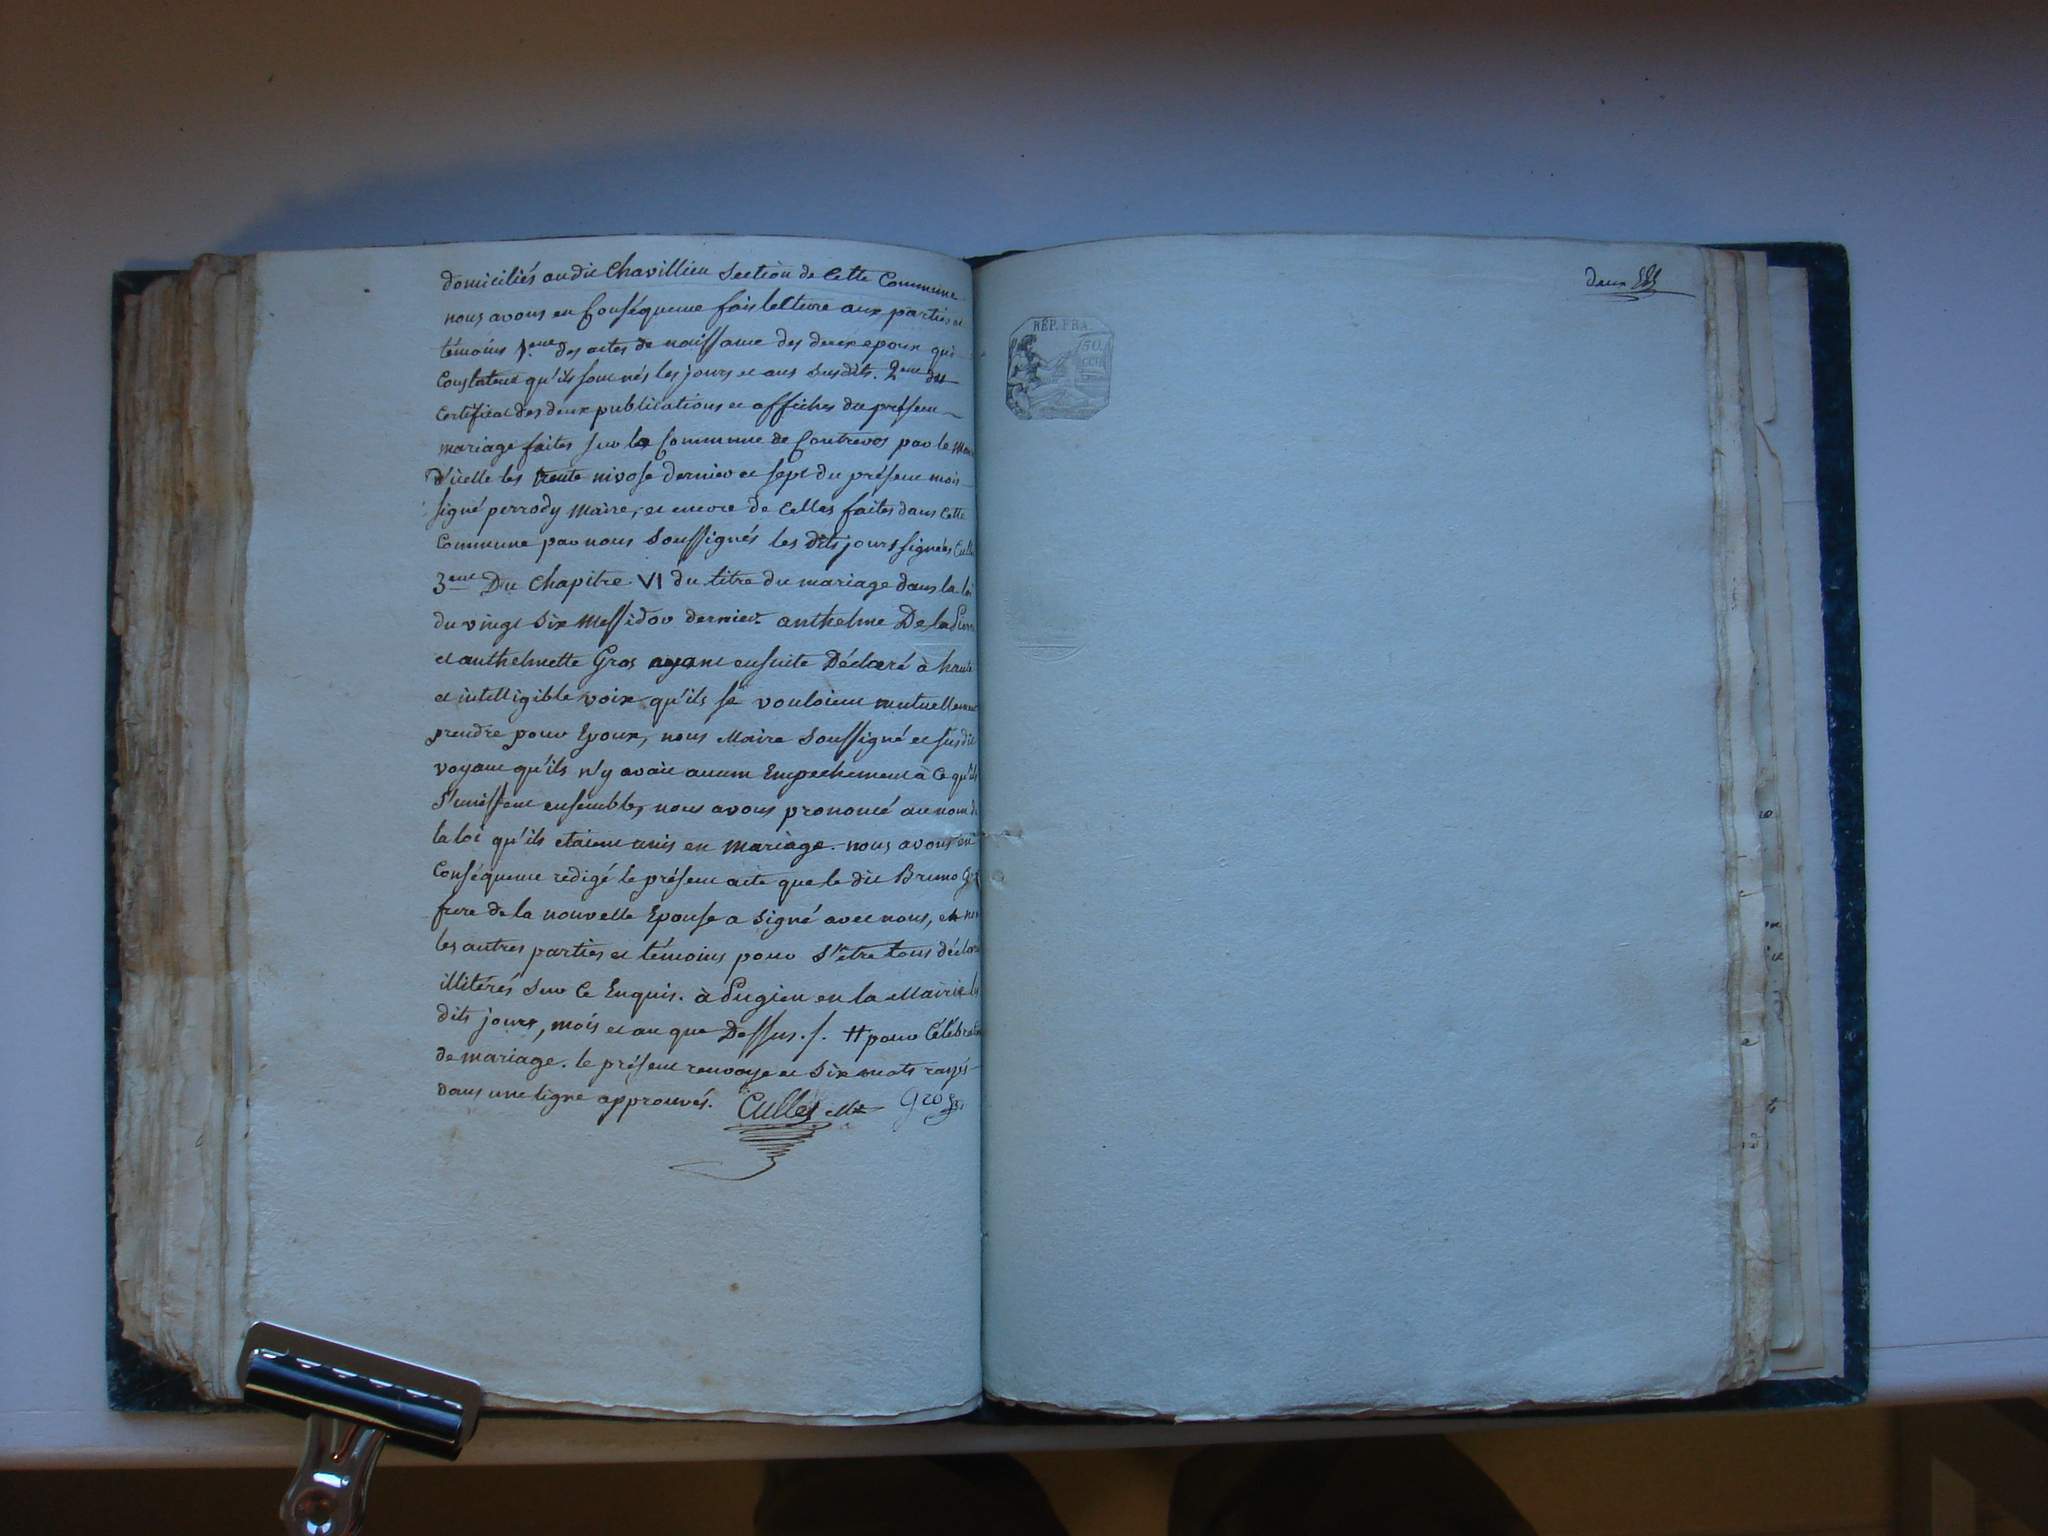 domiciliés audit Chavillieu Section de Cette Commune
nous avons en Conséquence fais lecture aux parties et
témoins 1.eme des actes de naissance des deux epoux qui
Constatent qu'ils sont nés les jours et ans susdits. 2eme du
Certificat des deux publications et affiches du présent
mariage faites sur la Commune de Contrevos par le
d'icelle les trente nivose dernier et sept du présent mois
signé perrody Maire, et encore de Celles faites dans Cette
Commune par nous Soussignés les dits jours signées
3eme Du Chapitre VI du titre du mariage dans la loi
du vingt Six Messidor dernier. anthelme De la
et anthelmette Gros ayant ensuite Déclaré à haute
et intelligible voix qu'ils se vouloient mutuellement
prendre pour Epoux, nous Maire Soussigné et susdit
voyant qu'ils n'y avoit aucun Empechement à Ce qu'ils
S'unissent ensemble, nous avons prononcé au nom de
la loi qu'ils etaient unis en mariage. nous avons en
Conséquence redigé le présent acte que le dit Bruno
frere de la nouvelle Epouse a signé avec nous, et non
les autres parties et témoins pour s'etre tous
illiterés sur Ce Enquis. à Pugieu en la Mairie les
dits jours, mois et an que Dessus ./. # pour Célébration
de mariage. le présent renvoye et Six mots rayés
dans une ligne approuvés. Cullet Mre Gros
deux
RÉP. FRA.
50